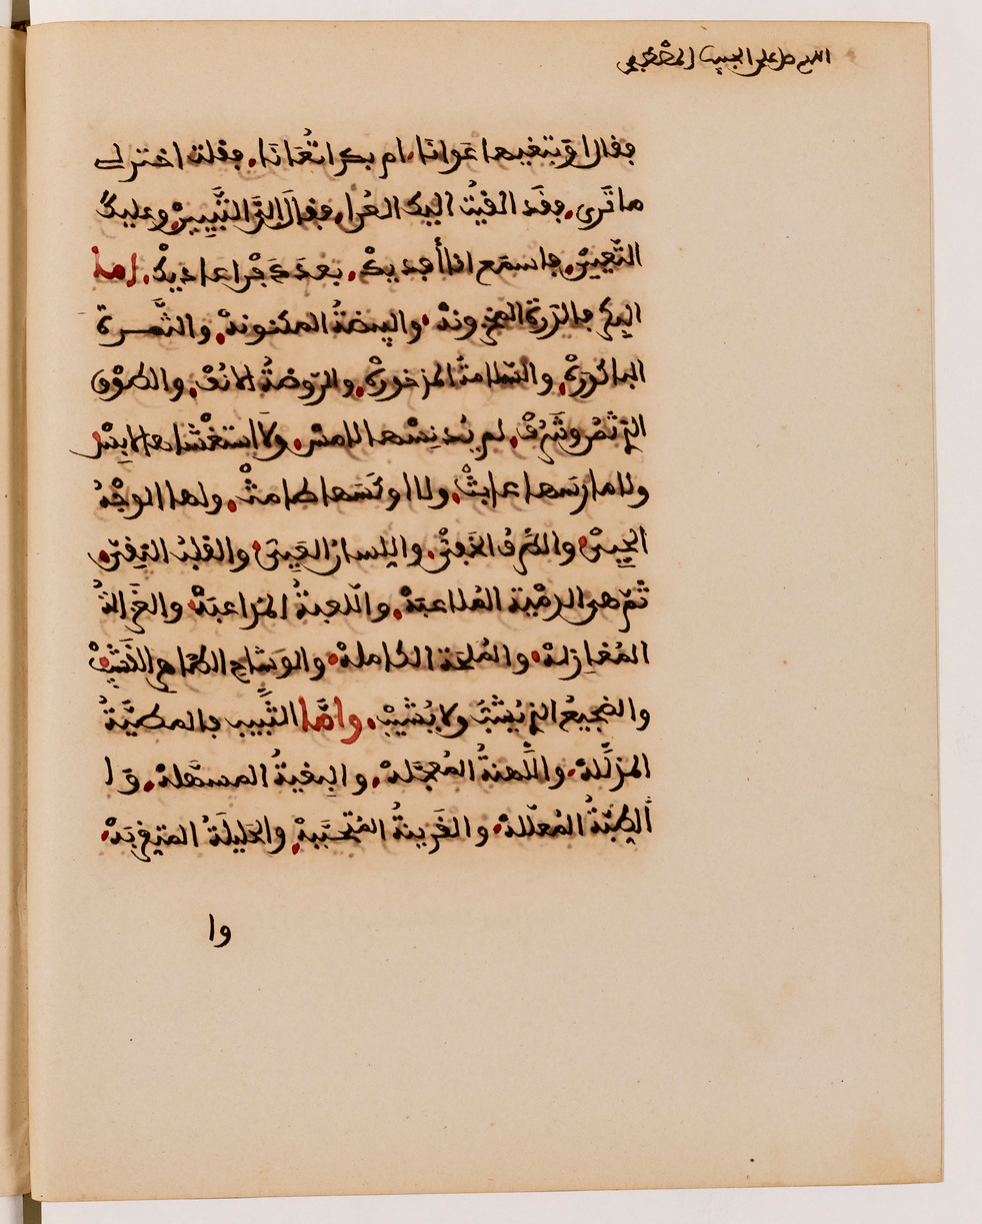 اللهم صل على الحبيب المصطفى
فقال اوتبتغيها عَوانًا، ام بكرا تُعَانَا، فقلت اختر لى
ما تَرى، فقَد القيتُ اليك العُرا، فقالَ اِلىَّ التَّبْيِيِنْ، وعليكَ
التّعيِينْ، فاستمع انا أفديكْ، بعدَ دَفْن اعاديكْ، اما
البكر فالدّرة المخزونهْ، والبيضةُ المكنونهْ، والثَّمرة
الباكُورَهْ، والسّلافةُ المذخورَهْ، والرّوضةُ الانُفْ، والطوْق
الذي ثَمُن وشَرُفْ، لم يُدنِسْها لامسْ، ولَا استغْشاها لابِسْ
ولا مارسَها عابثْ، ولا اوكَسَها طامثْ، ولها الوجْهُ
الحَيِىّْ، والطَّرفُ الخَفىّْ، واللِسانُ العَيِىّ، والقلبُ النِقىّ،
ثمّ هى الدمْية المُلاعبَهْ، واللّعبةُ المُداعبَهْ، والغَزالةُ
المُغازِلهْ، والمُلحَة الكاملهْ، والوِشاح الطّاهر القَشِيبْ
والضجيعُ الذي يُشِبُّ ولا يُشَيِّبْ، وامَّا الثَّيِّب فالمطيَّةُ
المذلَّلهْ، واللُّهنةُ المُعجَّلهْ، والبغيةُ المسهّلهْ، و ا
لطَبّةُ المُعلّلهْ، والقَرِينةُ المُتحَبِّبهْ، والخَلِيلَةُ المتقربَهْ،
وا